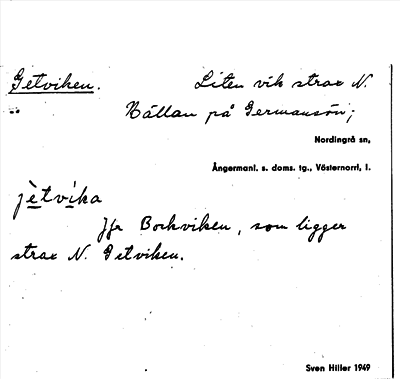 Getviken. Liten vik strax N.
Hällan på Germansön;
Nordingrå sn,
Ångermanl. s. doms. tg., Västernorrl. l.
jètvíka
Jfr Bockviken, som ligger
strax N. Getviken.
Sven Hiller 1949